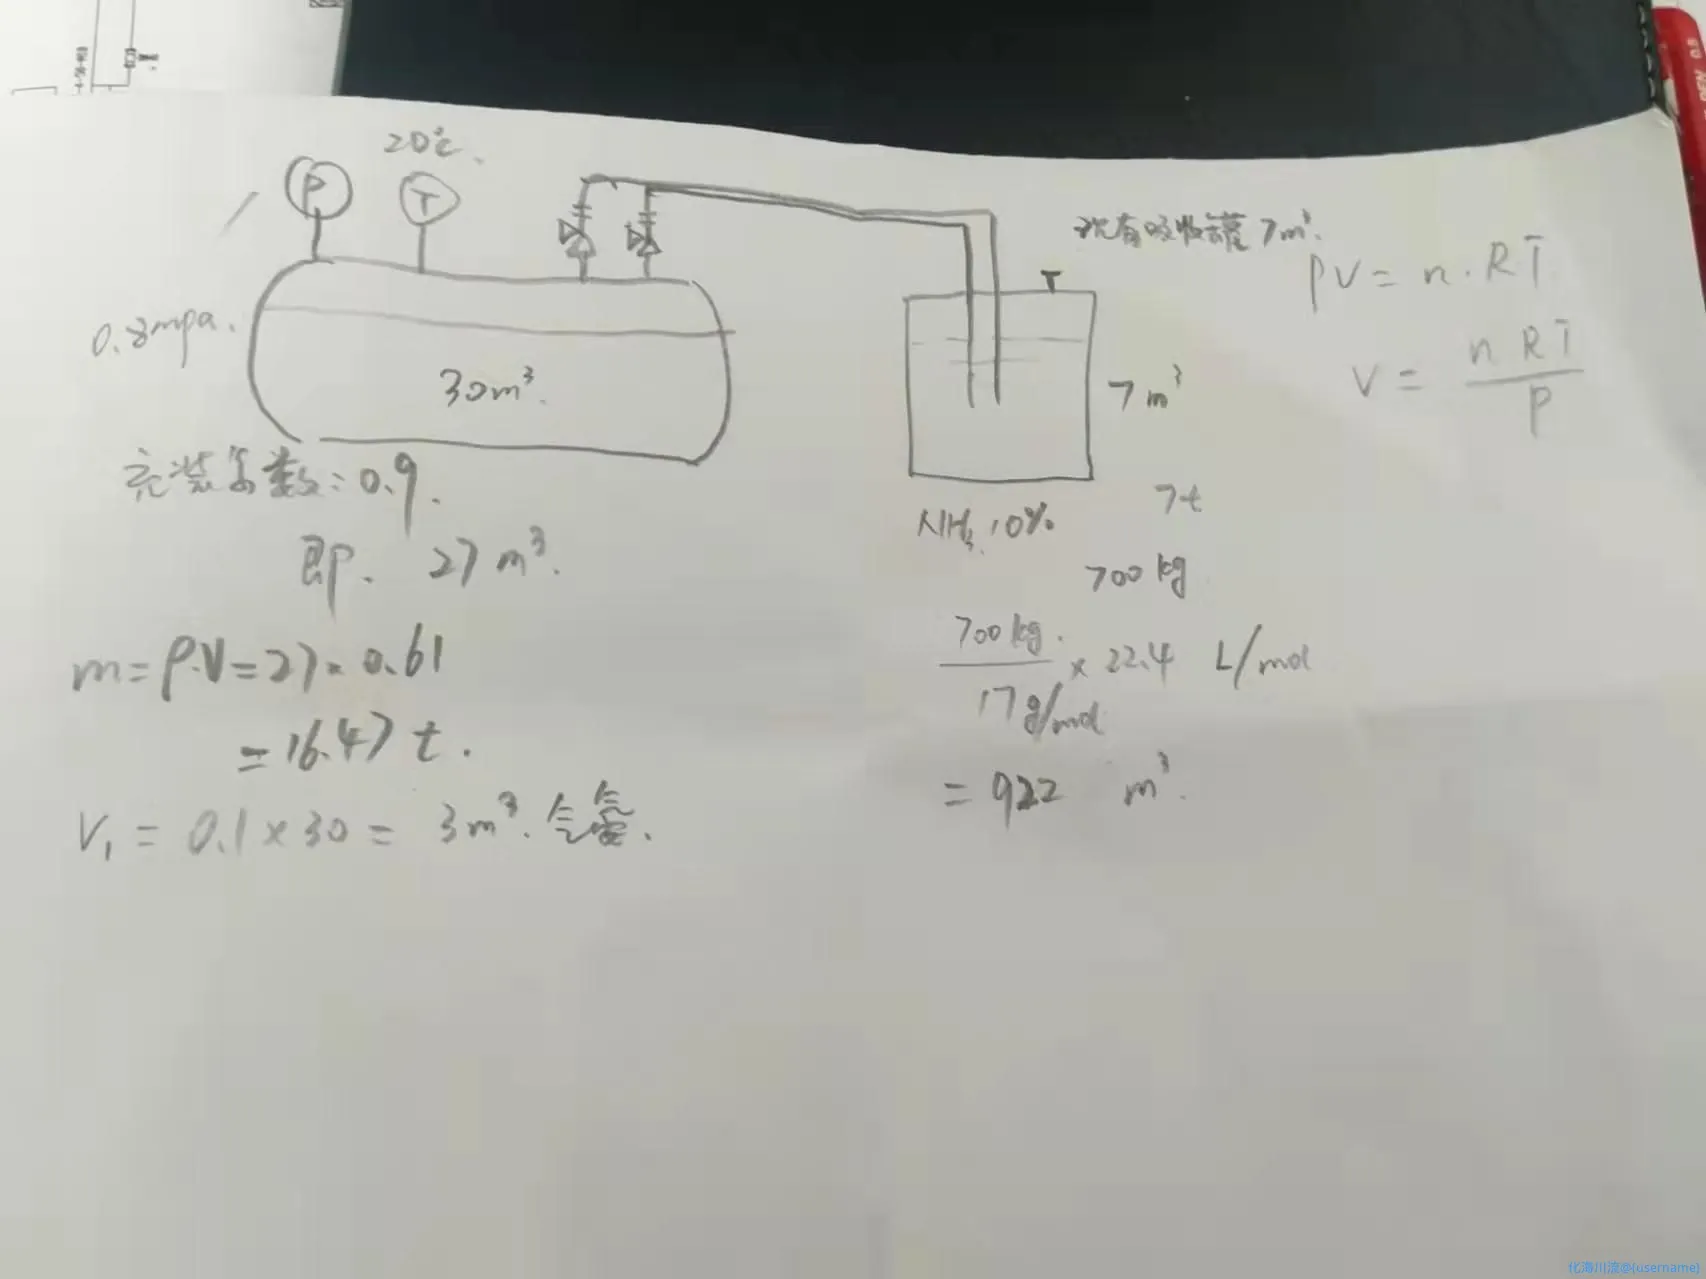 20℃.
P
T
0.8mpa.
30m³.
充装系数:0.9.
即. 27m³.
m=ρ.V=27×0.61
=16.47 t.
V₁ = 0.1×30 = 3m³.气氨.
现有吸收罐7m³.
T
7m³
NH₃ 10%
7t
700kg
700kg.
17g/mol
× 22.4 L/mol
= 922 m³.
PV = n.RT
V = nRT
P
化海川流@{username}